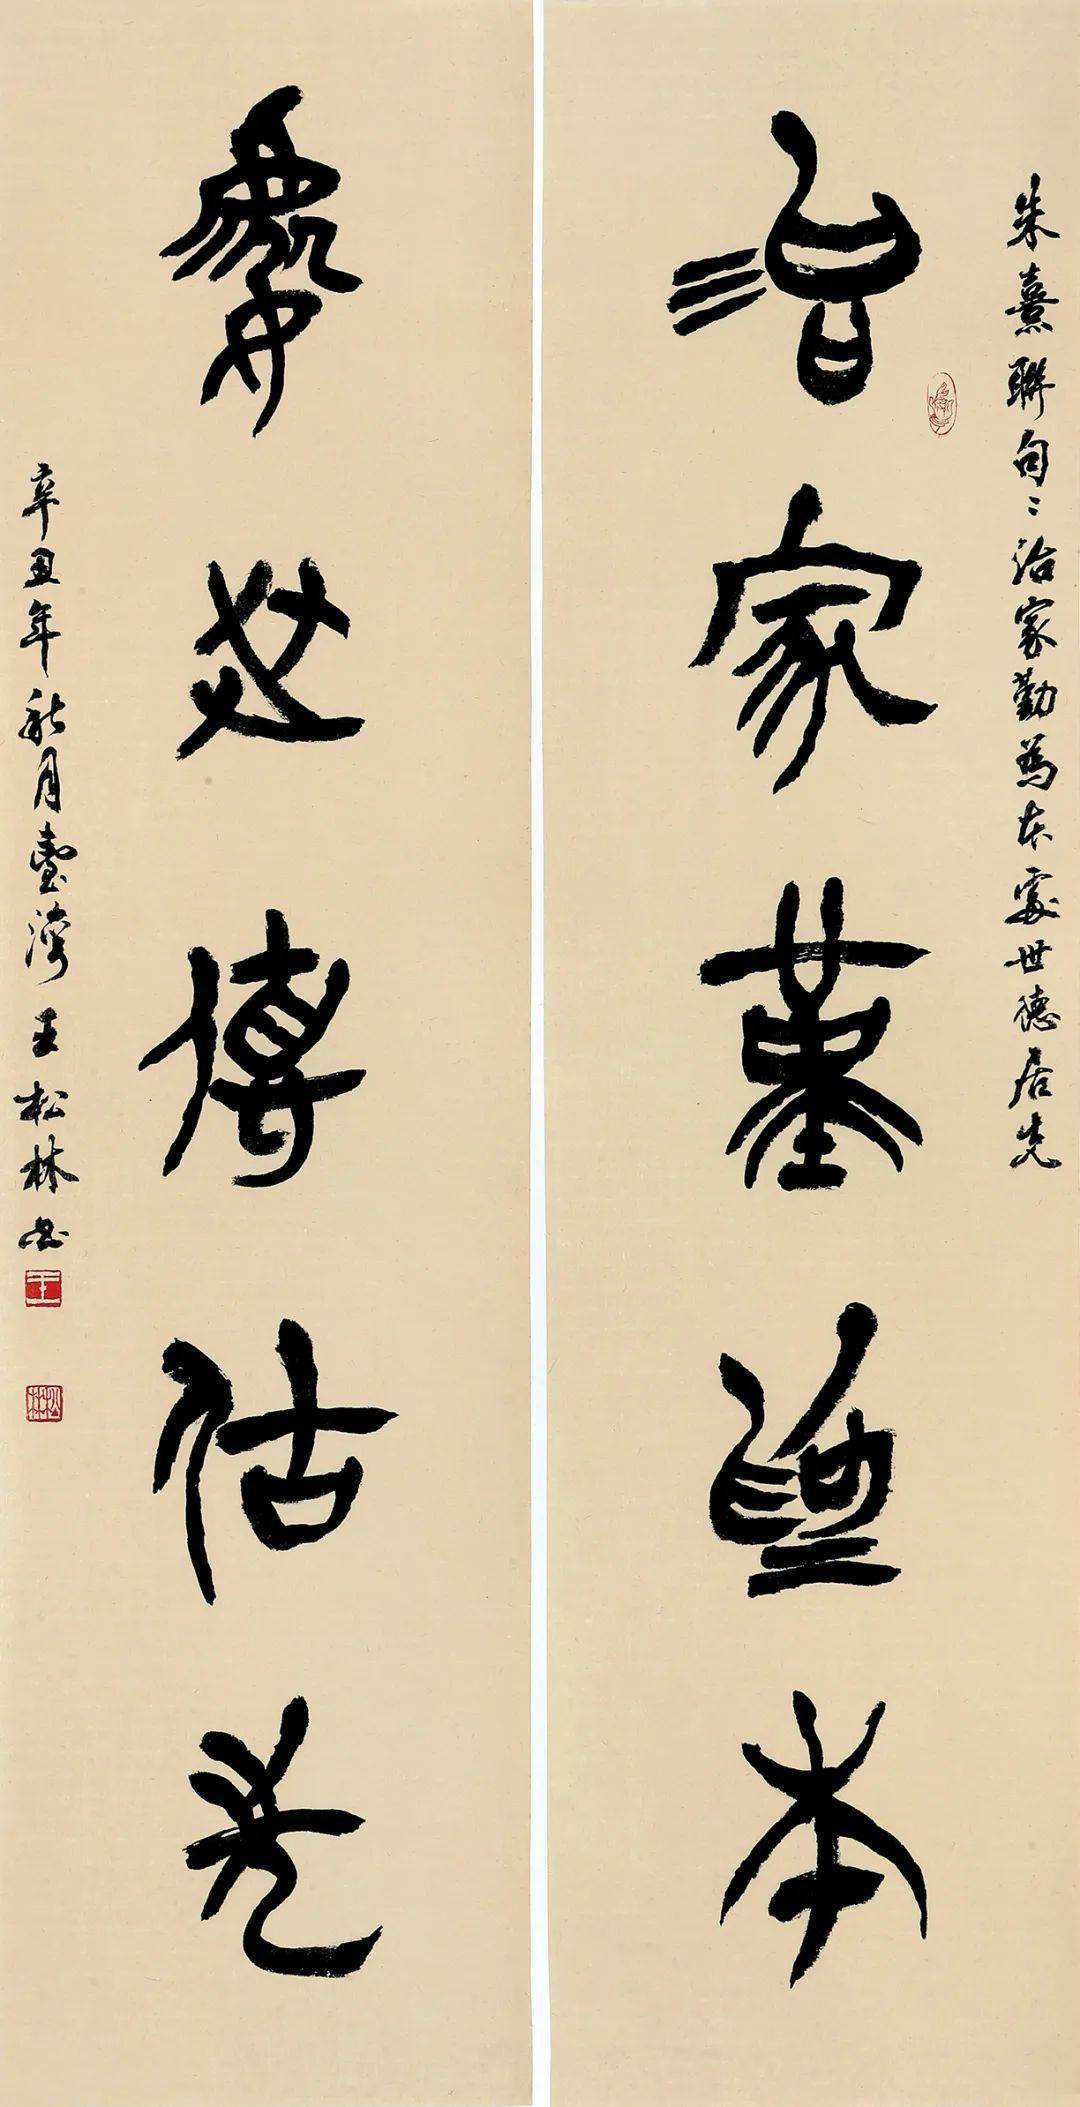 朱熹聯句：治家勤為本處世德居先
治家勤為本
處世德居先
辛丑年秋月臺灣王松林書
王
松林